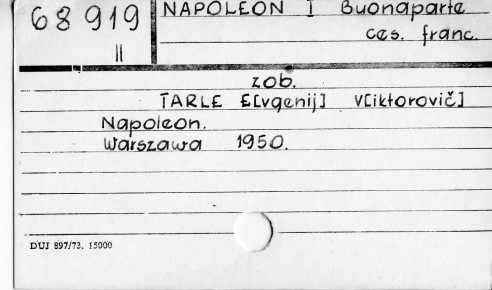 68 919
II
NAPOLEON I Buonaparte
ces. franc.
zob.
TARLE E[vgenij] V[iktorovič]
Napoleon.
Warszawa 1950.
DUJ 897/73. 15000